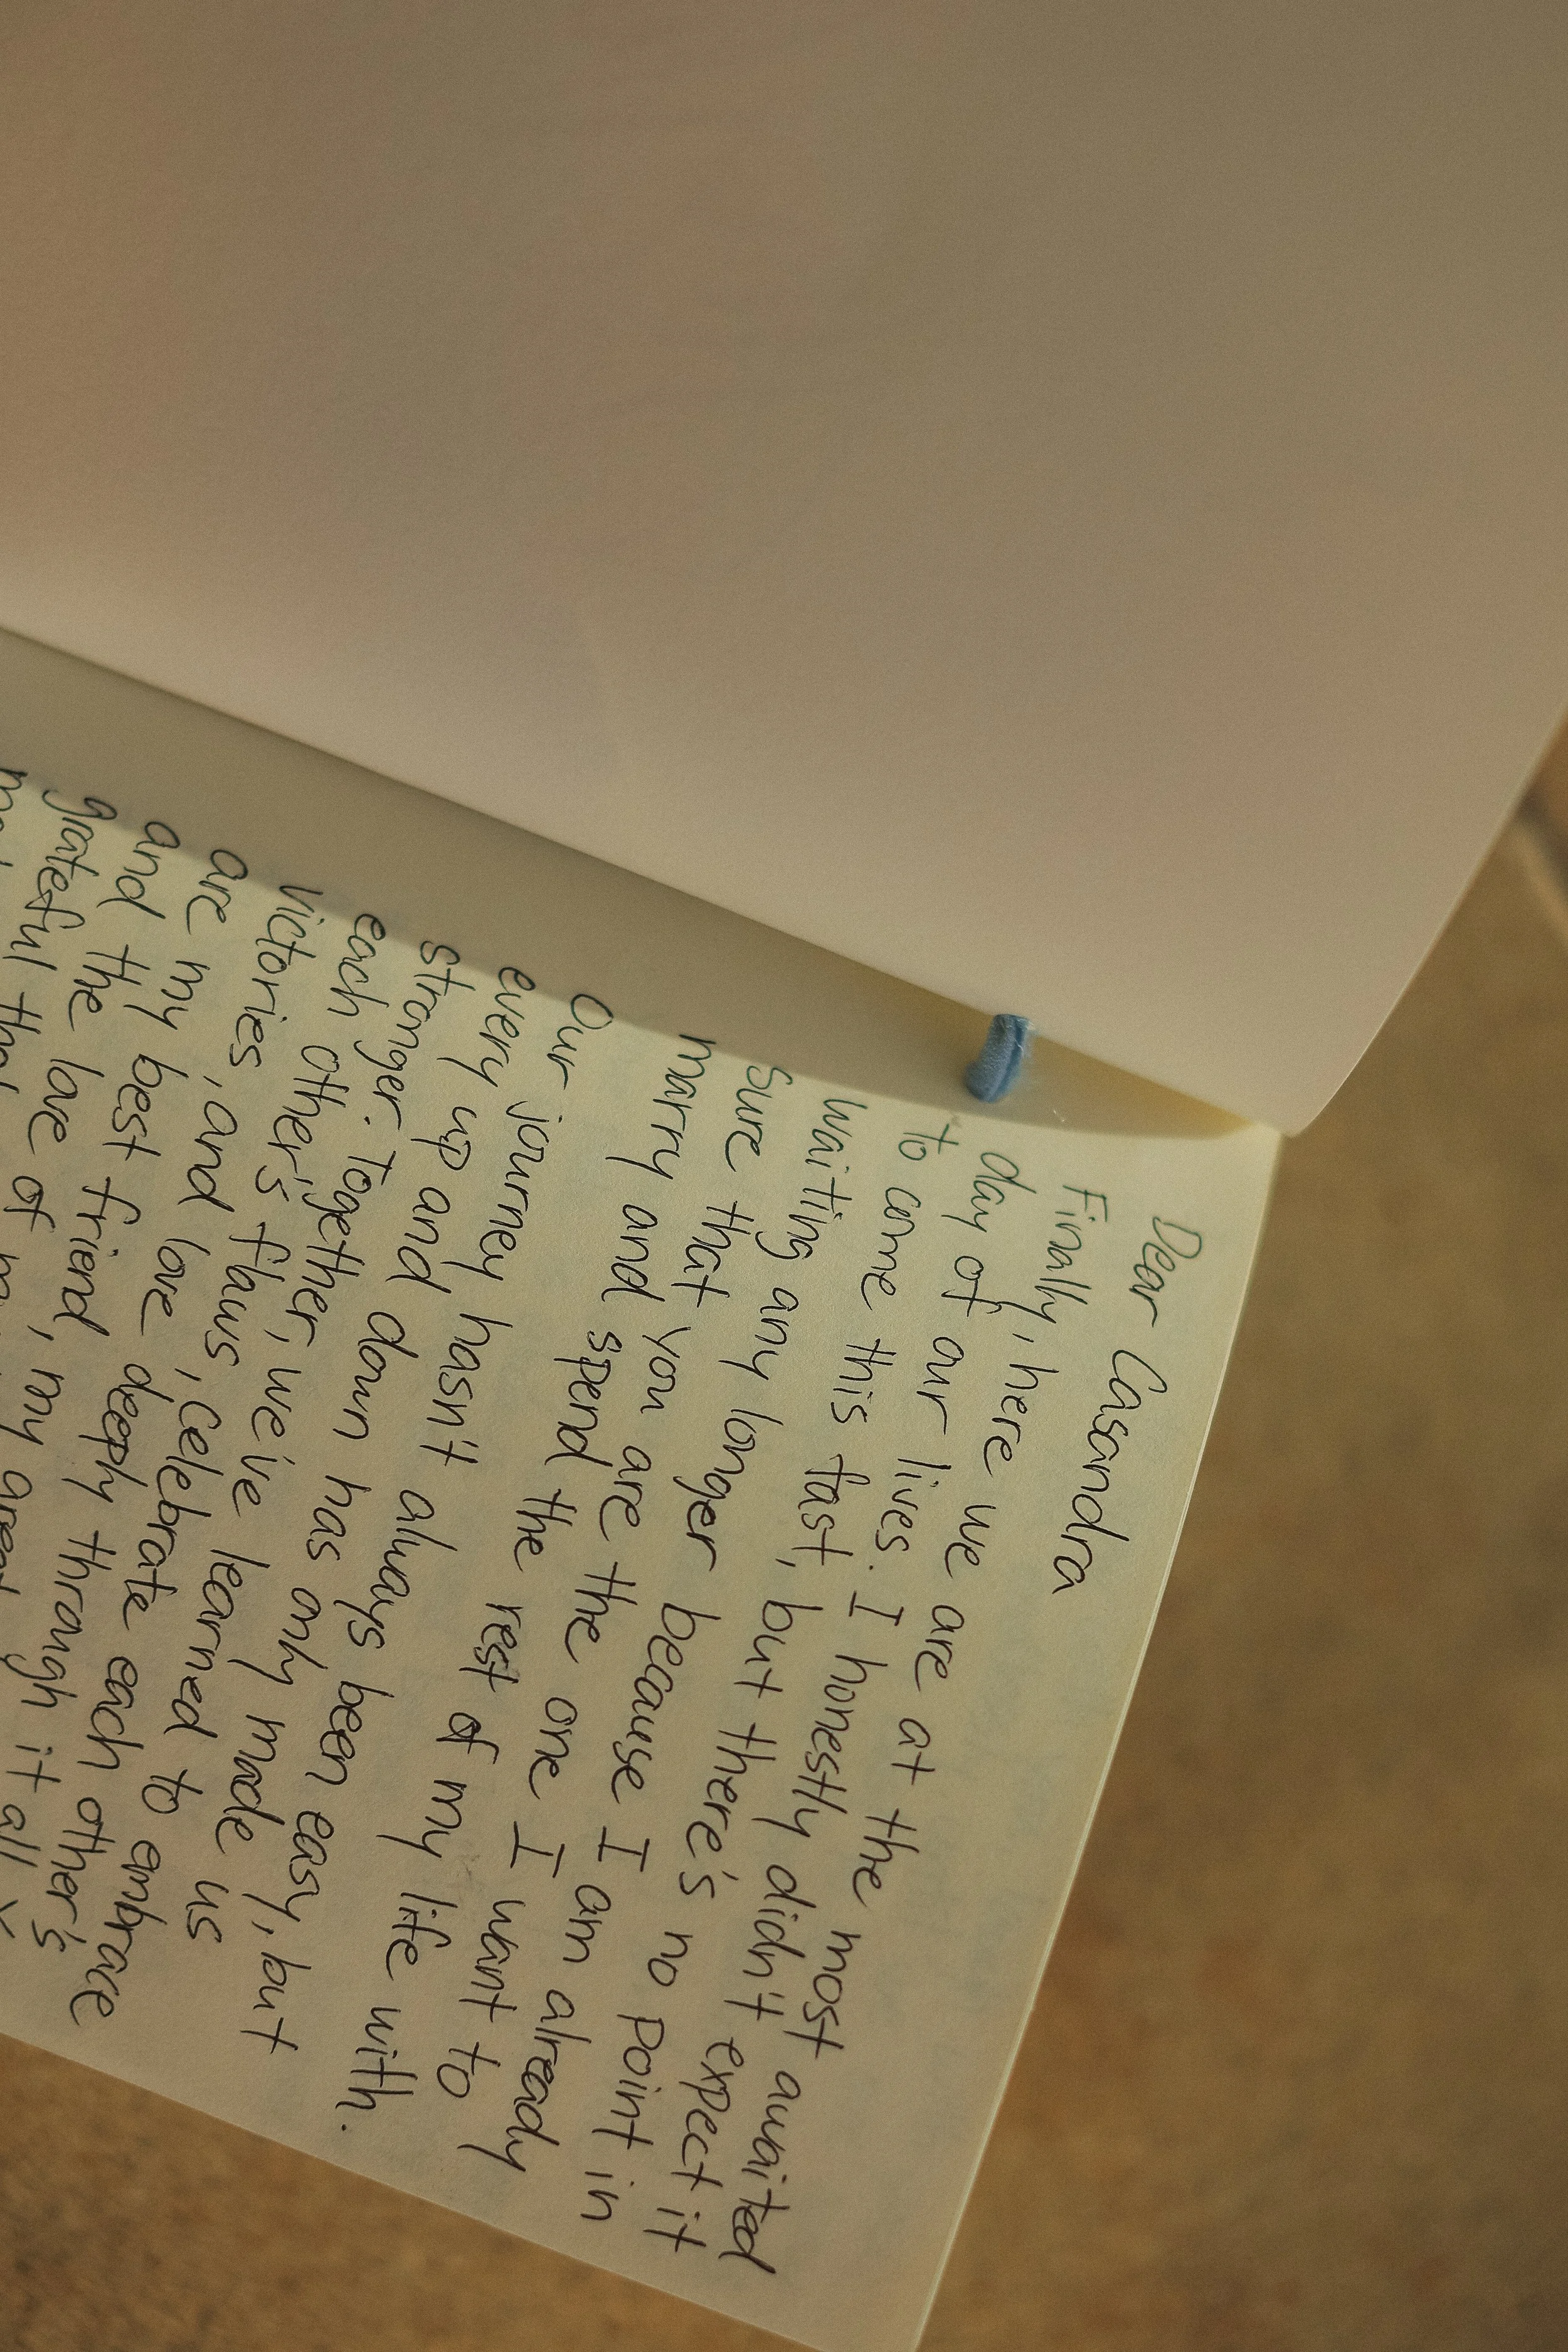 Dear Casandra
Finally, here we are at the most awaited
day of our lives. I honestly didn't expect it
to come this fast, but there's no point in
waiting any longer because I am already
sure that you are the one I want to
marry and spend the rest of my life with.
Our journey hasn't always been easy, but
every up and down has only made us
stronger. Together, we've learned to embrace
each other's flaws, celebrate each other's
victories, and love deeply through it all.
are my best friend, my
and the love of
grateful